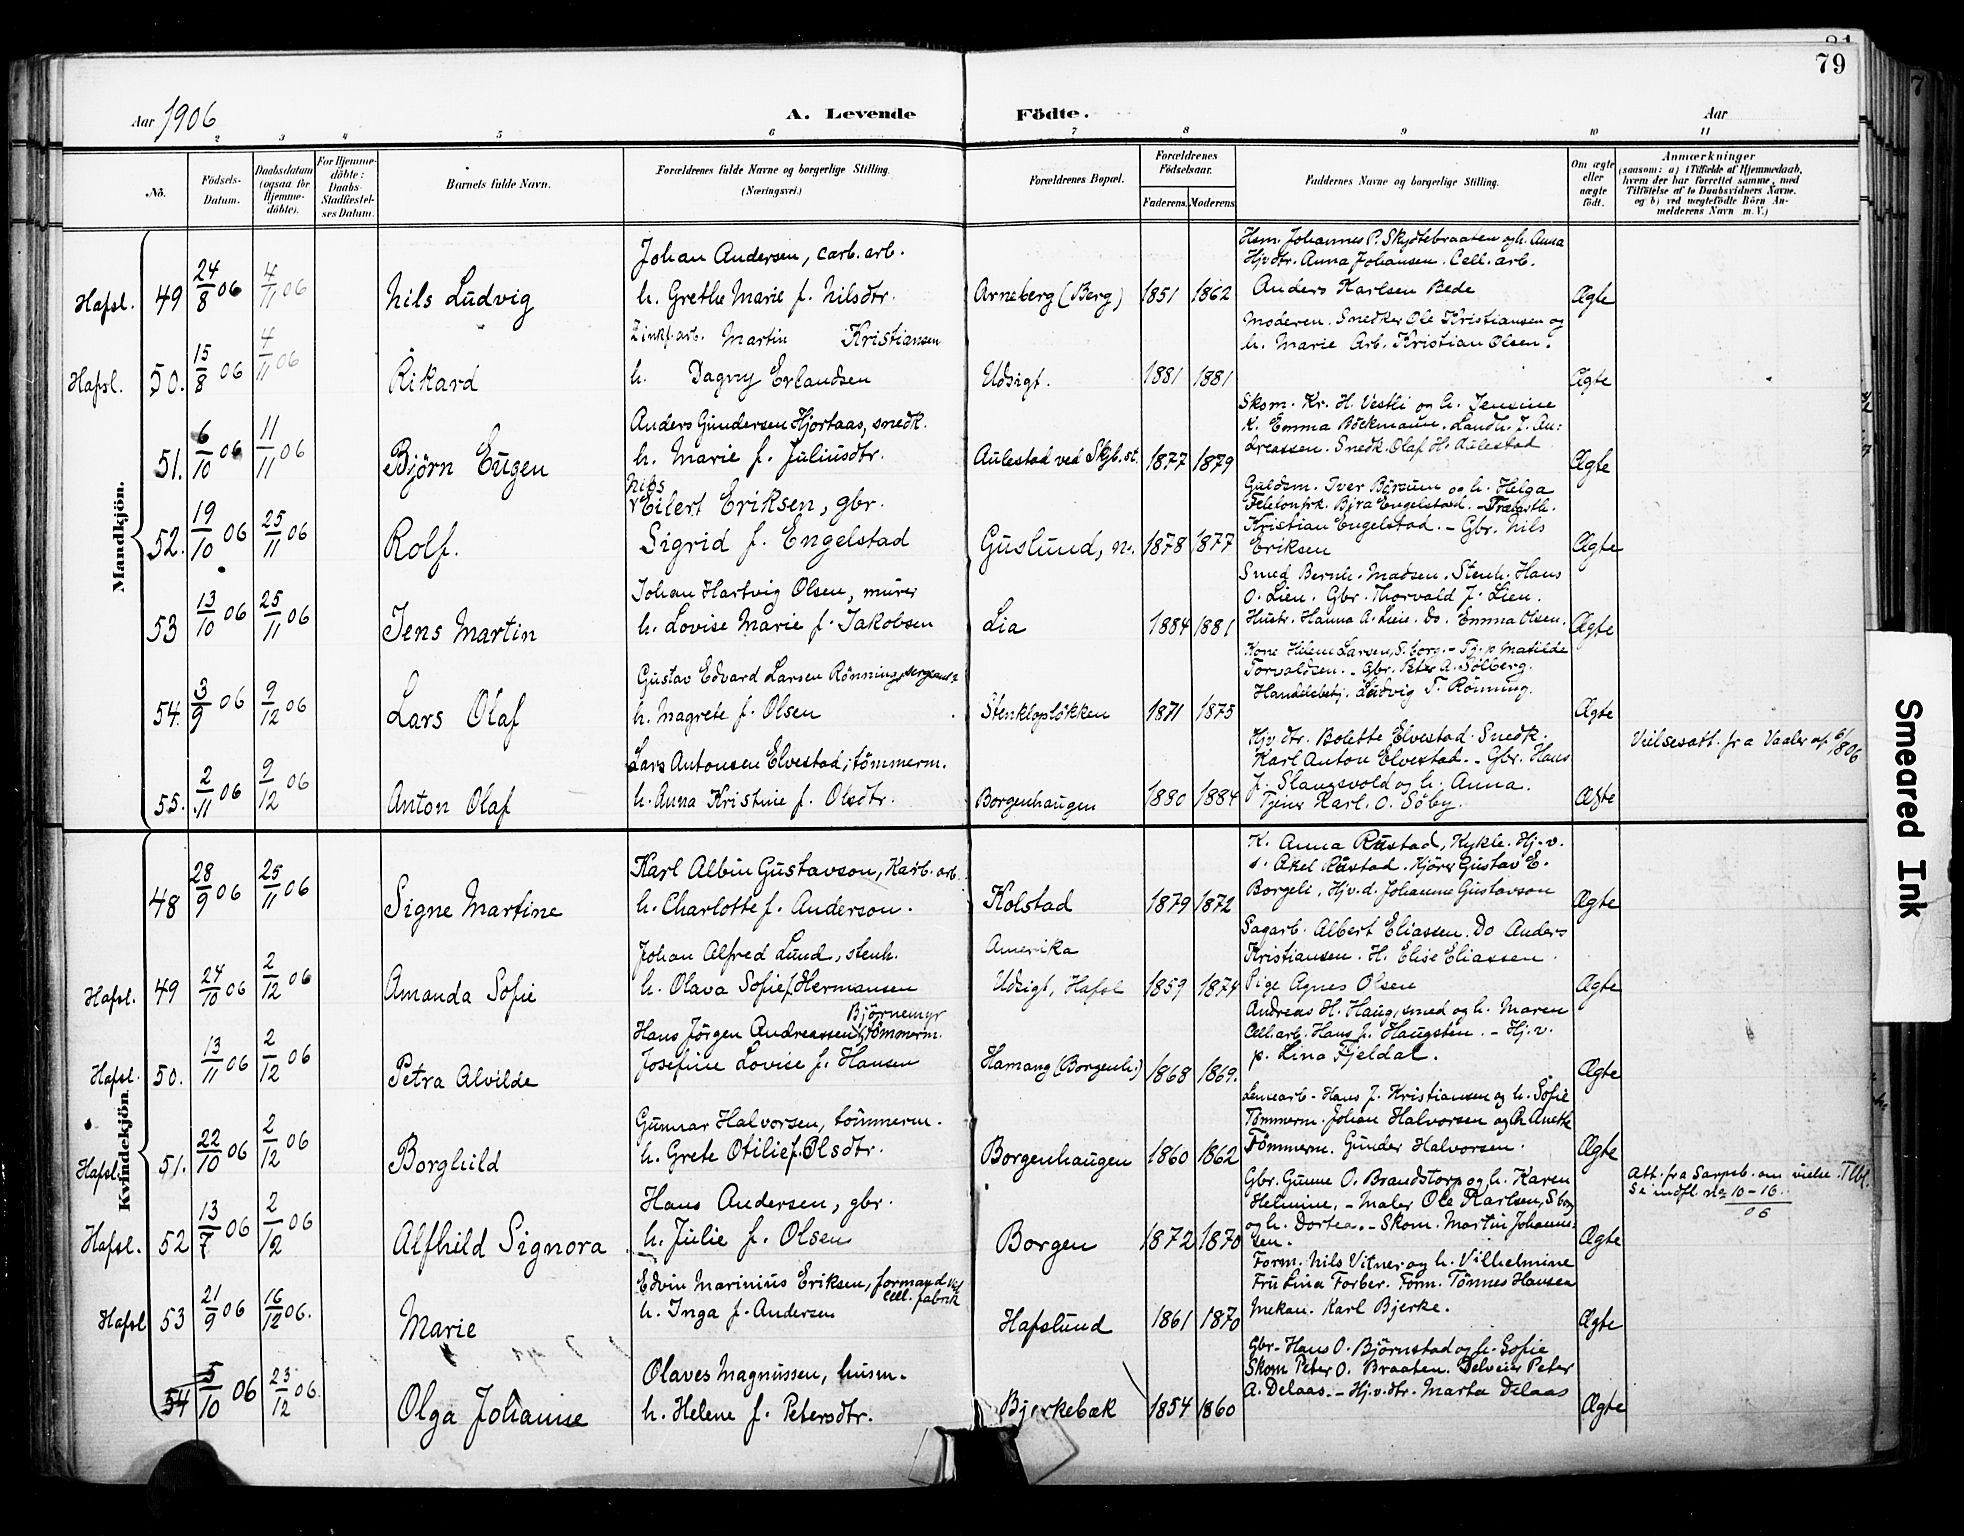 79
Aar 1906
A. Levende Födte.
Aar
2 3 4 5 6 7 8 9 10 11
No.
Födsels-Datum.
Daabsdatum (ogsaa for Hjemme-döbte).
For Hjemme-döbte: Daabs-Stadfæstel-ses Datum.
Barnets fulde Navn.
Forældrenes fulde Navne og borgerlige Stilling. (Næringsvei.)
Forældrenes Bopæl.
Forældrenes Födselsaar.
Faderens. Moderens.
Faddernes Navne og borgerlige Stilling.
Om ægte eller uægte födt.
Anmærkninger
(saasom: a) i Tilfælde af Hjemmedaab, hvem der har forrettet samme, med Tilföielse af to Daabsvidners Navne. og b) ved uægtefödte Börn An-melderens Navn m. V.)
Mandkjön.
Hafsl. 49 24/8 06 4/11 06 Nils Ludvig
Johan Andersen, carb. arb.
h. Grethe Marie f. Nilsdtr.
Arneberg (Berg) 1851 1862
Hsm. Johannes P. Skydtebraaten og h. Anna
Hjv dtr. Anna Johansen. Cell. arb.
Anders Karlsen Bede
Ægte
Hafsl. 50. 15/8 06 4/11 06 Rikard
Zinkf. arb. Martin Kristiansen
h. Dagny Erlandsen
Udsigt. 1881 1881
Moderen. Snedker Ole Kristiansen og
h. Marie Arb. Kristian Olsen.
Ægte
51. 6/10 06 11/11 06 Björn Eugen
Anders Gundersen Hjortaas, snedk.
h. Marie f. Juliusdtr.
Aulestad ved Skjb. st. 1877 1879
Skom. Kr. H. Vestli og h. Jensine
K. Emma Böckmann. Landh. J. An:
dreassen. Snedk. Olaf H. Aulestad
Ægte
52. 19/10 06 25/11 06 Rolf.
Nils
Eilert Eriksen, gbr.
Sigrid f. Engelstad
Guslund, n. 1878 1877
Guldsm. Iver Börsum og h. Helga
Telefonfrk. Bjra Engelstad.
Kristian Engelstad. - Gbr. Nils
Eriksen
Ægte
53 13/10 06 25/11 06 Jens Martin
Johan Hartvig Olsen, murer
h. Lovise Marie f. Jakobsen
Lia 1884 1881
Smed Bernh. Madsen. Stenh. Hans
O. Lien. Gbr. Thorvald J. Lien.
Hustr. Hanna A. Lien. Do. Emma Olsen.
Ægte
54. 3/9 06 9/12 06 Lars Olaf
Gustav Edvard Larsen Rönning, sergeant
h. Magrete f. Olsen
Stenkloplökken 1871 1875
Kone Helene Larsen, S. borg. - Tj. p Matilde
Torvaldsen. - Gbr. Peter A. Solberg.
Handelsbetj. Ludvig T. Rönning.
Ægte
55. 2/11 06 9/12 06 Anton Olaf
Lars Antonsen Elvestad, tömmerm.
h. Anna Kristine f. Olsdtr.
Borgenhaugen 1880 1884
Hjv dtr. Bolette Elvestad. Snedk.
Karl Anton Elvestad. - Gbr. Hans
J. Slangsvold og h. Anna.
Tjener Karl. O. Söby.
Ægte
Vielsesatt. fra Vaaler af 6/8 06
Kvindekjön.
48 28/9 06 25/11 06 Signe Martine
Karl Albin Gustavson, Karb. arb.
h. Charlotte f. Anderson.
Kolstad 1879 1872
K. Anna Rustad, Kykle. Hj. v.
s. Axel Rustad. Kjörer Gustav E.
Borgeli, Hj. v. d. Johanne Gustavson
Ægte
Hafsl. 49 24/10 06 2/12 06 Amanda Sofie
Johan Alfred Lund, stenh.
h. Olava Sofie f. Hermansen
Amerika
Udsigt, Hafsl 1859 1874
Sagarb. Albert Eliassen. Do Anders
Kristiansen. H. Elise Eliassen.
Pige Agnes Olsen
Ægte
Hafsl. 50. 13/11 06 2/12 06 Petra Alvilde
Björnemyr
Hans Jörgen Andreassen, tömmerm.
Josefine Lovise f. Hansen
Hamang (Borgenh.) 1868 1869.
Andreas H. Haug, smed og h. Maren
Cell. arb. Hans J. Haugsten. - Hj. v.
p. Lina Fjeldal.
Ægte
Hafsl. 51. 22/10 06 2/12 06 Borghild
Gunnar Halvorsen, tömmerm.
h. Grete Otilie f. Olsdtr.
Borgenhaugen 1860 1862
Lensearb - Hans J. Kristiansen og h. Sofie
Tömmerm. Johan Halvorsen og h. Anethe
Tömmerm. Gunder Halvorsen.
Ægte
Hafsl. 52 13/7 06 2/12 06 Alfhild Signora
Hans Andersen, gbr.
h. Julie f. Olsen
Borgen 1872 1870
Gbr. Gunne O. Brandstorp og h. Karen
Helmine, - Maler Ole Karlsen, S borg
og h. Dortea. - Skom. Martin Johanne:
sen.
Ægte
Att. fra Sarpsb. om vielse. Tlbl.
Se indfl. No 10-16. 06
Hafsl 53 21/9 06 16/12 06. Marie
Edvin Marinius Eriksen, formand ved
Cell. fabrik
h. Inga f. Andersen
Hafslund 1861 1870
Form. Nils Vitner og h. Vilhelmine
Fru Lina Forber. Form. Tönnes Hansen
Mekan. Karl Bjerke.
Ægte
54 5/10 06 23/12 06. Olga Johanne
Olaves Magnussen, husm.
h. Helene f. Petersdtr.
Bjerkebæk 1854 1860
Gbr- Hans O. Björnstad og h. Sofie
Skom Peter O. Braaten. Delveier Peter
A. Delaas. - Hj. v. dtr. Marta Delaas
Ægte
Smeared Ink